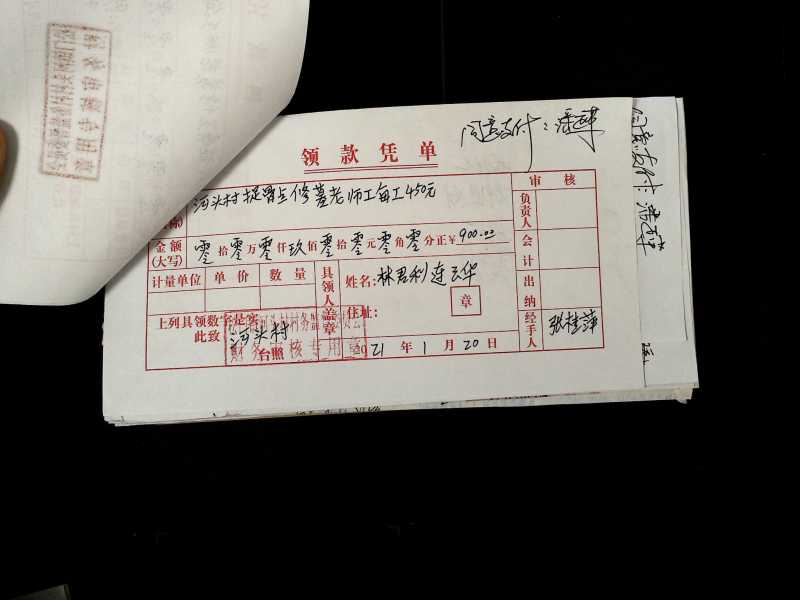 同意支付：
领款凭单
河头村提留占修墓老师工每工450元
金额(大写) 零拾零万零仟玖佰零拾零元零角零分正￥900.00
审核
负责人
会计
出纳
经手人 张桂萍
计量单位 单价 数量
具领人盖章
姓名：林君利 连云华
住址：
章
上列具领数字是实
此致 河头村 台照
财务审核专用章
2021年1月20日
同意支付：